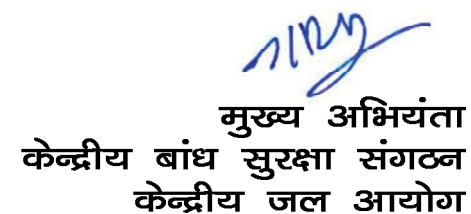 मुख्य अभियंता
केन्द्रीय बांध सुरक्षा संगठन
केन्द्रीय जल आयोग